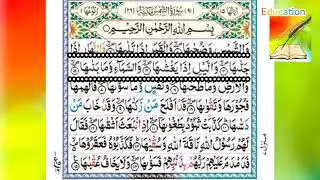 Education
اٰيَاتُهَا ١٥ (٩١) سُوْرَةُ الشَّمْسِ مَكِّيَّةٌ (٢٦) رُكُوْعُهَا ١
بِسْمِ اللّٰهِ الرَّحْمٰنِ الرَّحِيْمِ
وَالشَّمْسِ وَضُحٰىهَا ۝ وَالْقَمَرِ اِذَا تَلٰىهَا ۝ وَالنَّهَارِ اِذَا
جَلّٰىهَا ۝ وَالَّيْلِ اِذَا يَغْشٰىهَا ۝ وَالسَّمَآءِ وَمَا بَنٰىهَا ۝
وَالْاَرْضِ وَمَا طَحٰىهَا ۝ وَنَفْسٍ وَّمَا سَوّٰىهَا ۝ فَاَلْهَمَهَا
فُجُوْرَهَا وَتَقْوٰىهَا ۝ قَدْ اَفْلَحَ مَنْ زَكّٰىهَا ۝ وَقَدْ خَابَ مَنْ
دَسّٰىهَا ۝ كَذَّبَتْ ثَمُوْدُ بِطَغْوٰىهَا ۝ اِذِ انْۢبَعَثَ اَشْقٰىهَا ۝ فَقَالَ
لَهُمْ رَسُوْلُ اللّٰهِ نَاقَةَ اللّٰهِ وَسُقْيٰهَا ۝ فَكَذَّبُوْهُ فَعَقَرُوْهَا
فَدَمْدَمَ عَلَيْهِمْ رَبُّهُمْ بِذَنْۢبِهِمْ فَسَوّٰىهَا ۝ وَلَا يَخَافُ عُقْبٰهَا ۝